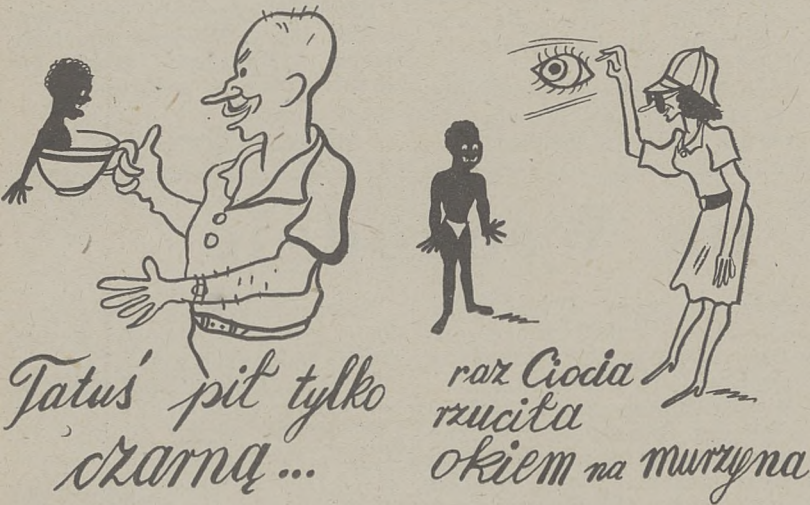 Tatuś pił tylko
czarną...
raz Ciocia
rzuciła
okiem na murzyna